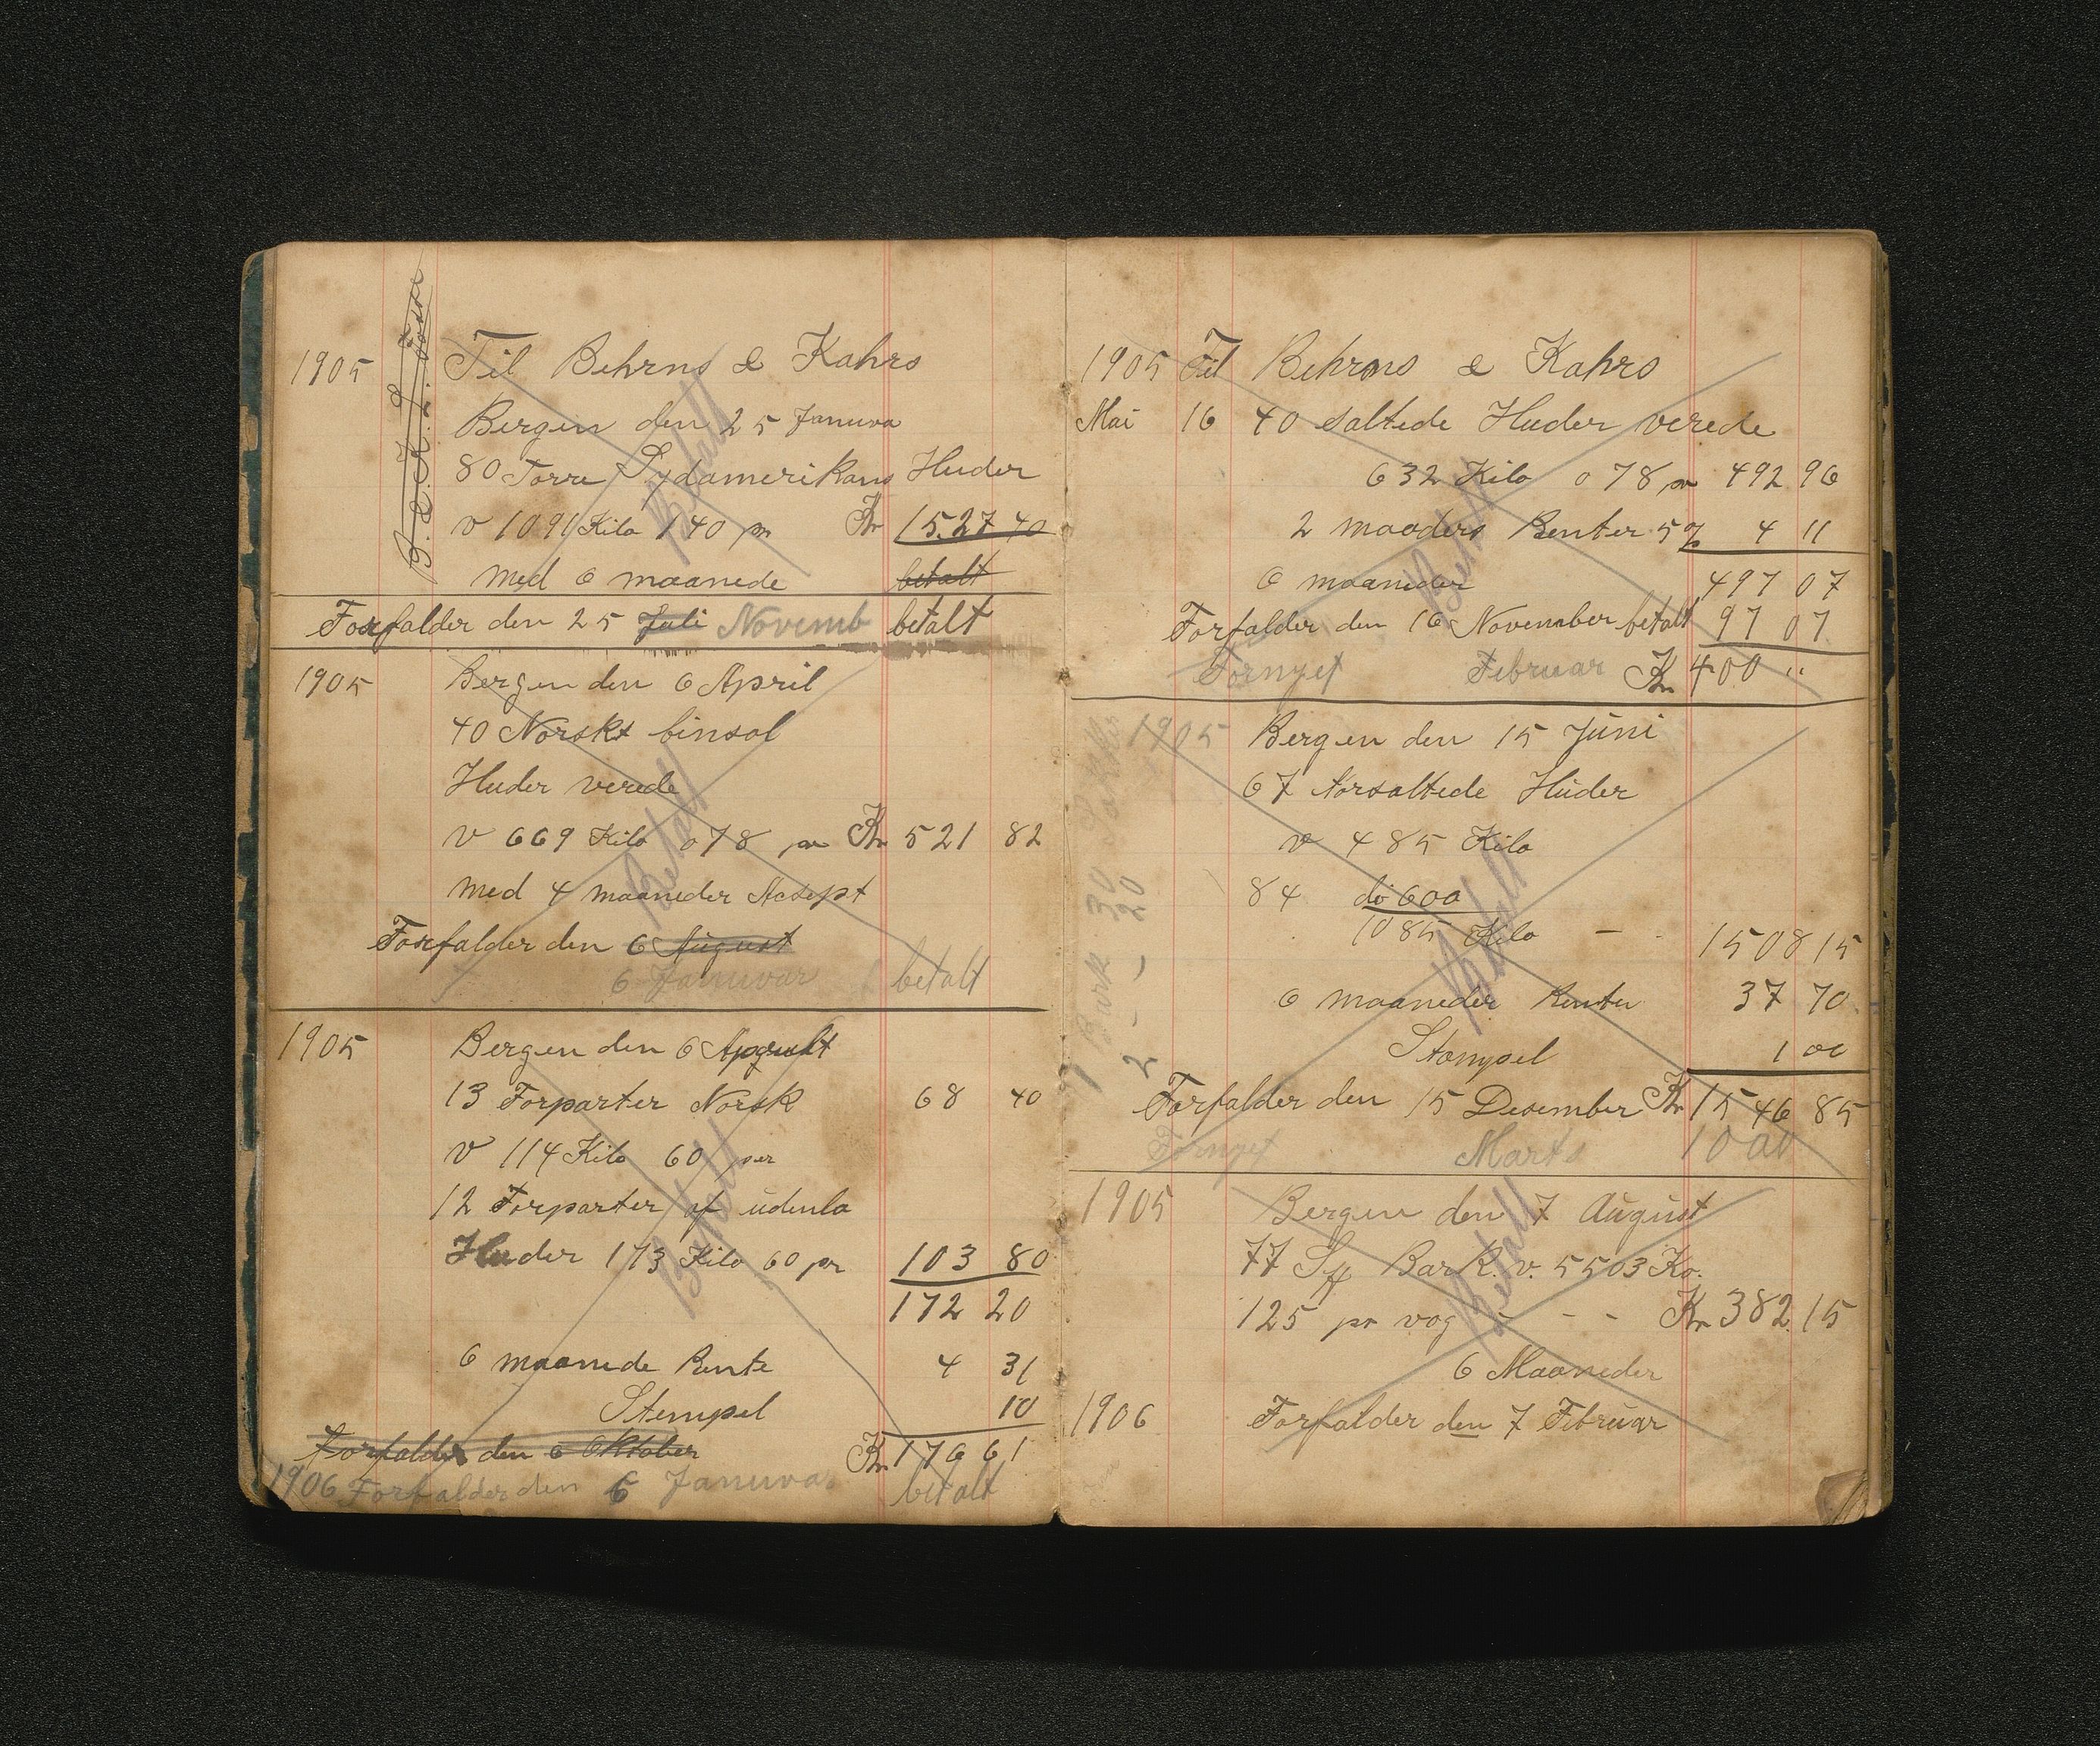 1905 Til Behrns & Kahrs
Bergen den 25 Januva
80 Torre Sydamerikans Huder
v 1091 Kilo 140 pr Kr 1527 40
med 6 maanede betalt
Forfalder den 25 Juli Novemb betalt
Betalt
1905 Bergen den 6 April
40 Norskt binsol
Huder verede
v 669 Kilo 0 78 pr Kr 521 82
med 4 maaneder Acsept
Forfalder den 6 August
6 Januvar betalt
Betalt
1905 Bergen den 6
13 Forparter Norsk 68 40
v 114 Kilo 60 per
12 Forparter af udenla
Huder 173 Kilo 60 pr 103 80
172 20
6 maanede Rente 4 31
Stempel 10
Forfalder den 6 Oktober Kr 176 61
1906 Forfalder den 6 Januvar betalt
Betalt
1905 Til Behrns & Kahrs
Mai 16 40 saltede Huder verede
632 Kilo 0 78 pr 492 96
2 maaders Renter 5% 4 11
6 maaneder 497 07
Forfalder den 16 November betalt 97 07
Fornyet Februar Kr 400 "
Betalt
1905 Bergen den 15 Juni
67 Norsaltede Huder
v 485 Kilo
84 do 600
1085 Kilo - - 1508 15
6 maaneder Renter 37 70
Stempel 1 00
Forfalder den 15 Desember Kr 1546 85
Fornyet Marts 1000
Betalt
1905 Bergen den 7 August
77 Bark. v. 5503 Ko.
125 pr vog - - - Kr 382 15
6 Maaneder
1906 Forfalder den 7 Februar
Betalt